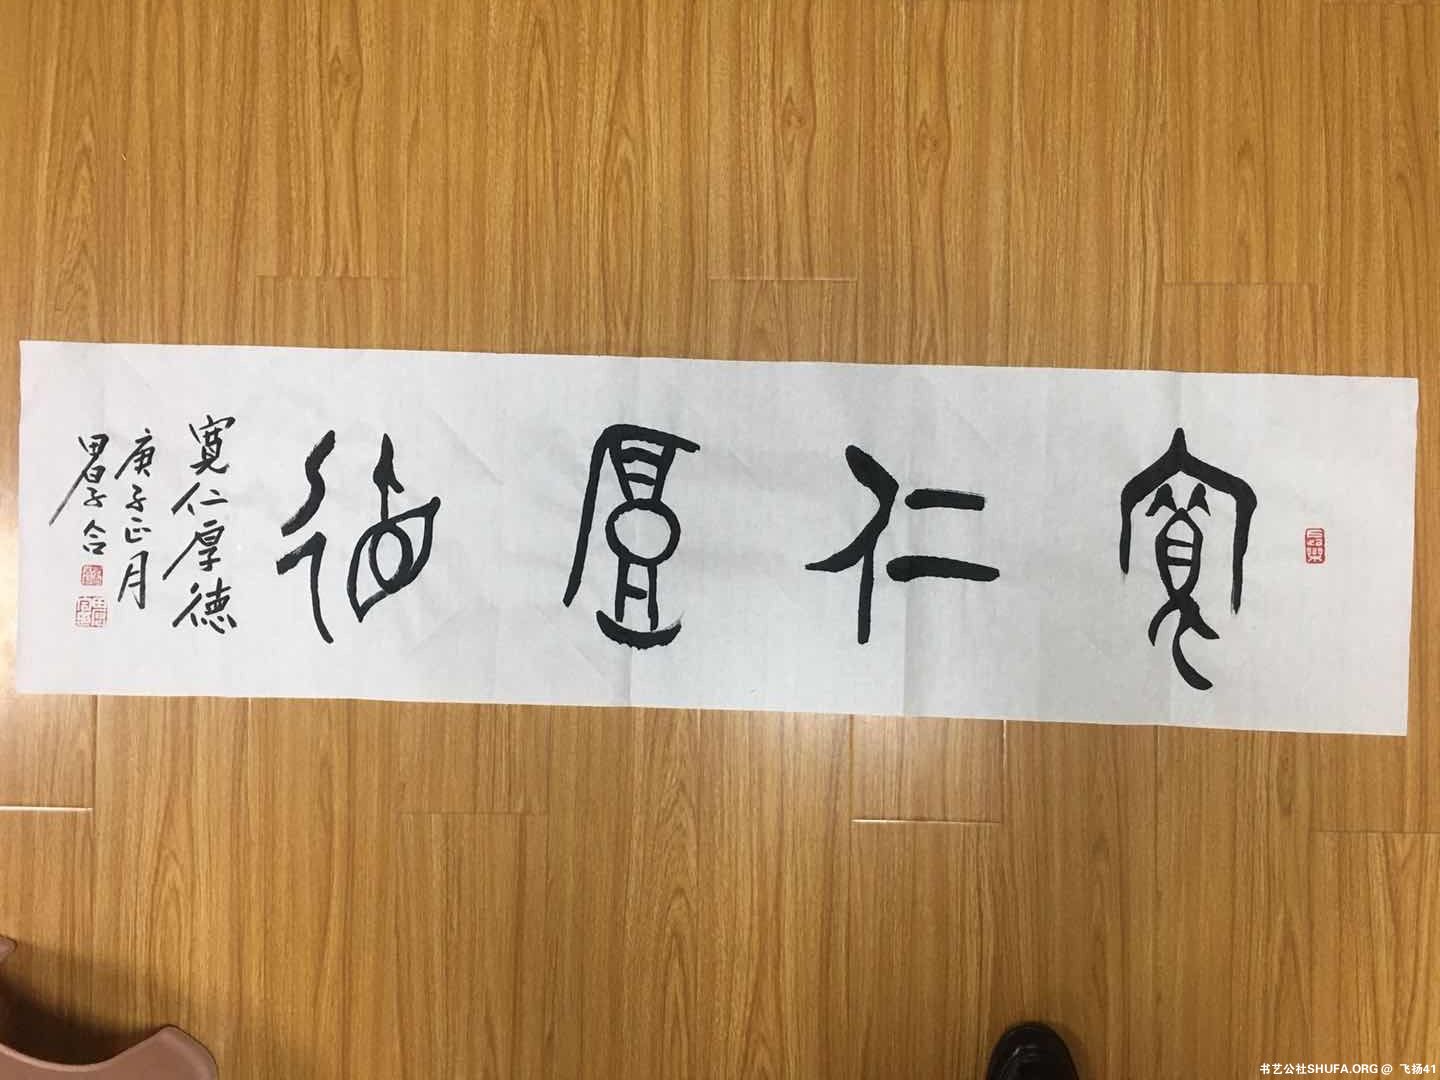 寬仁厚德
寬仁厚德
庚子正月
书艺公社SHUFA.ORG @ 飞扬41